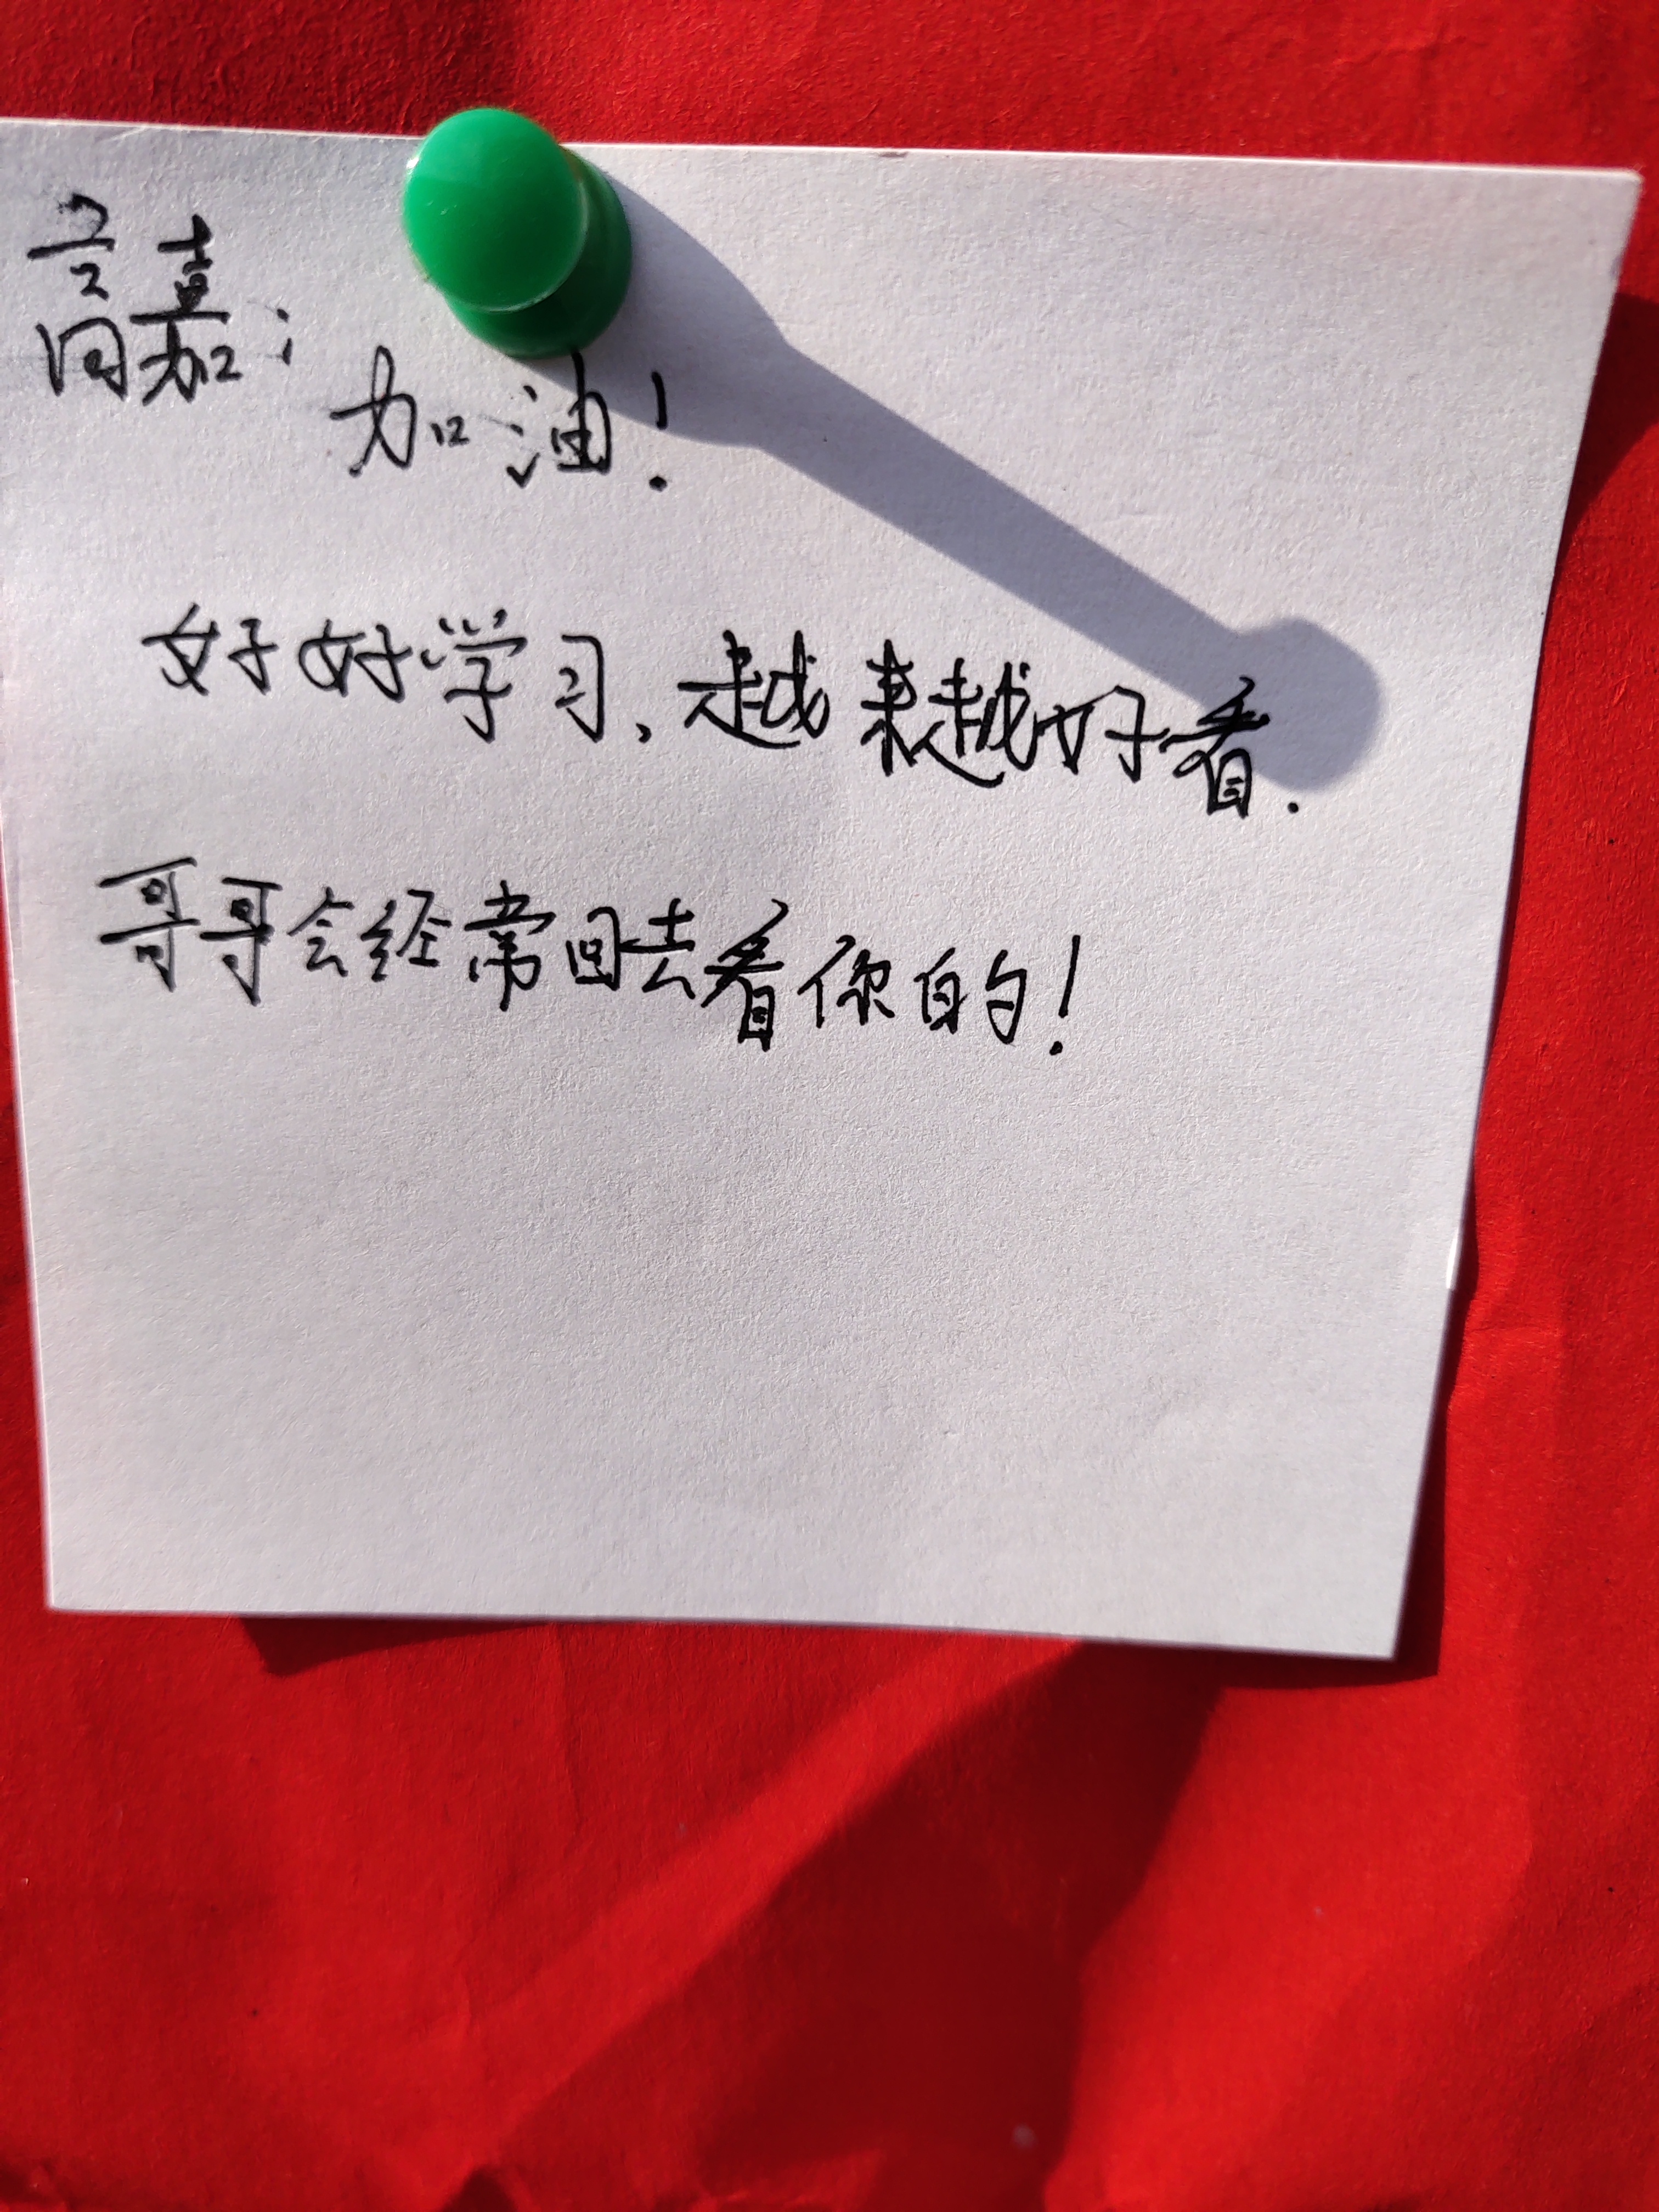 高嘉：
加油！
好好学习、越来越好看.
哥哥会经常回去看你的！